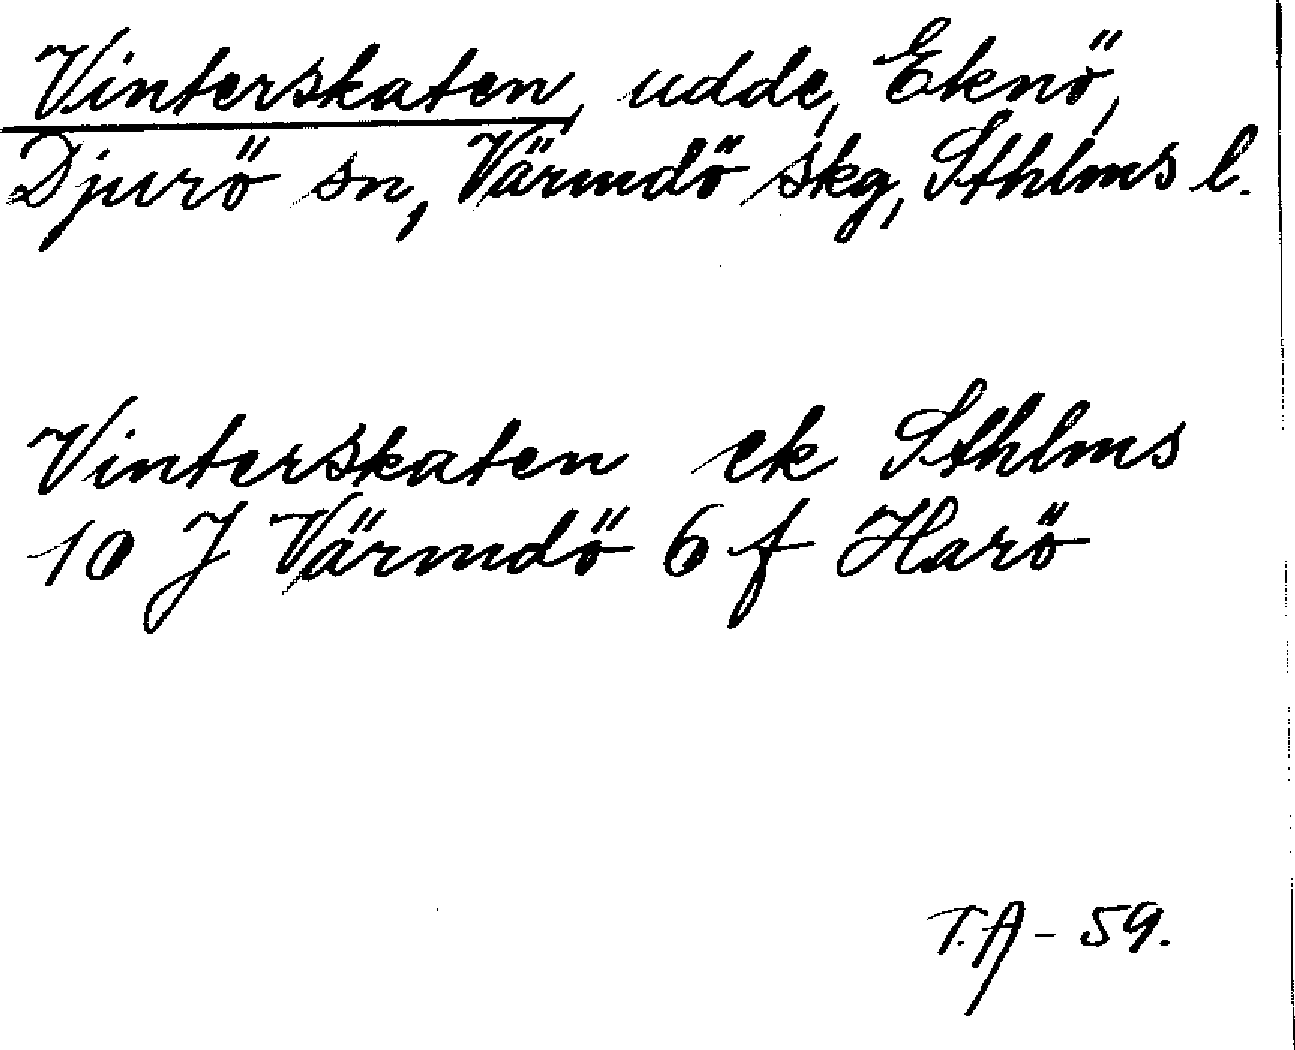 Vinterskaten, udde, Eknö,
Djurö sn, Värmdö skg, Sthlms l.
Vinterskaten ek Sthlms
10 J Värmdö 6 f Harö
T.A - 59.